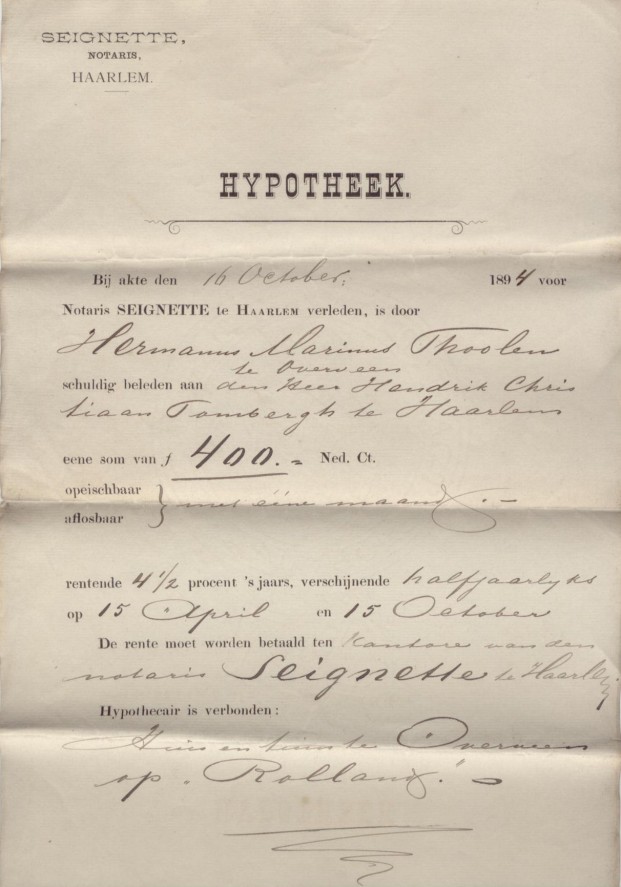 SEIGNETTE,
NOTARIS,
HAARLEM.
HYPOTHEEK.
Bij akte den 16 October, 1894 voor
Notaris SEIGNETTE te HAARLEM verleden, is door
Hermanus Marinus Thoolen
te Overveen
schuldig beleden aan den Heer Hendrik Chris
tiaan Tombergh te Haarlem
eene som van f 400.- Ned. Ct.
opeischbaar
aflosbaar } met ééne maand.-
rentende 4 1/2 procent 's jaars, verschijnende halfjaarlyks
op 15 April en 15 October
De rente moet worden betaald ten Kantore van den
notaris Seignette te Haarlem
Hypothecair is verbonden:
Huis en tuin te Overveen
op "Rolland."